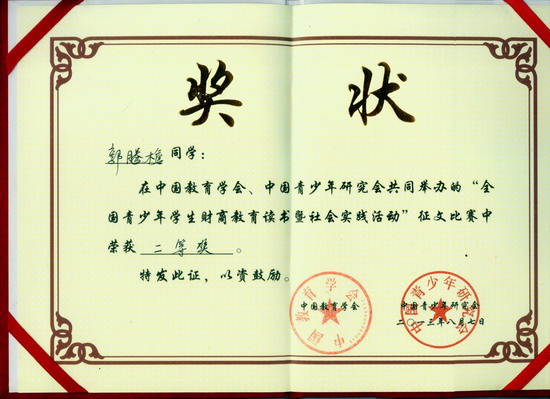 奖状
郭腾樵同学：
在中国教育学会、中国青少年研究会共同举办的“全
国青少年学生财商教育读书暨社会实践活动”征文比赛中
荣获 二等奖 。
特发此证，以资鼓励。
中国教育学会
中国青少年研究会
中国教育学会
中国青少年研究会
二〇一三年八月七日